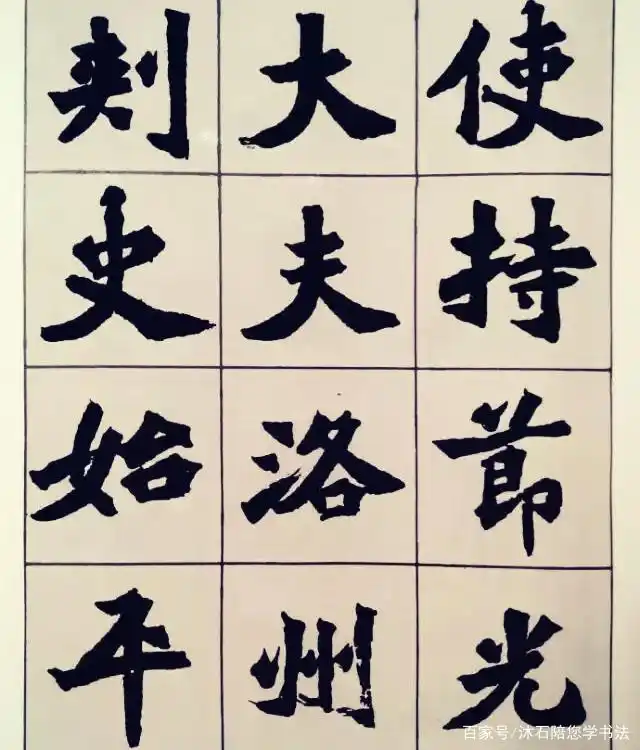 使持節光
大夫洛州
刺史始平
百家号/沐石陪您学书法